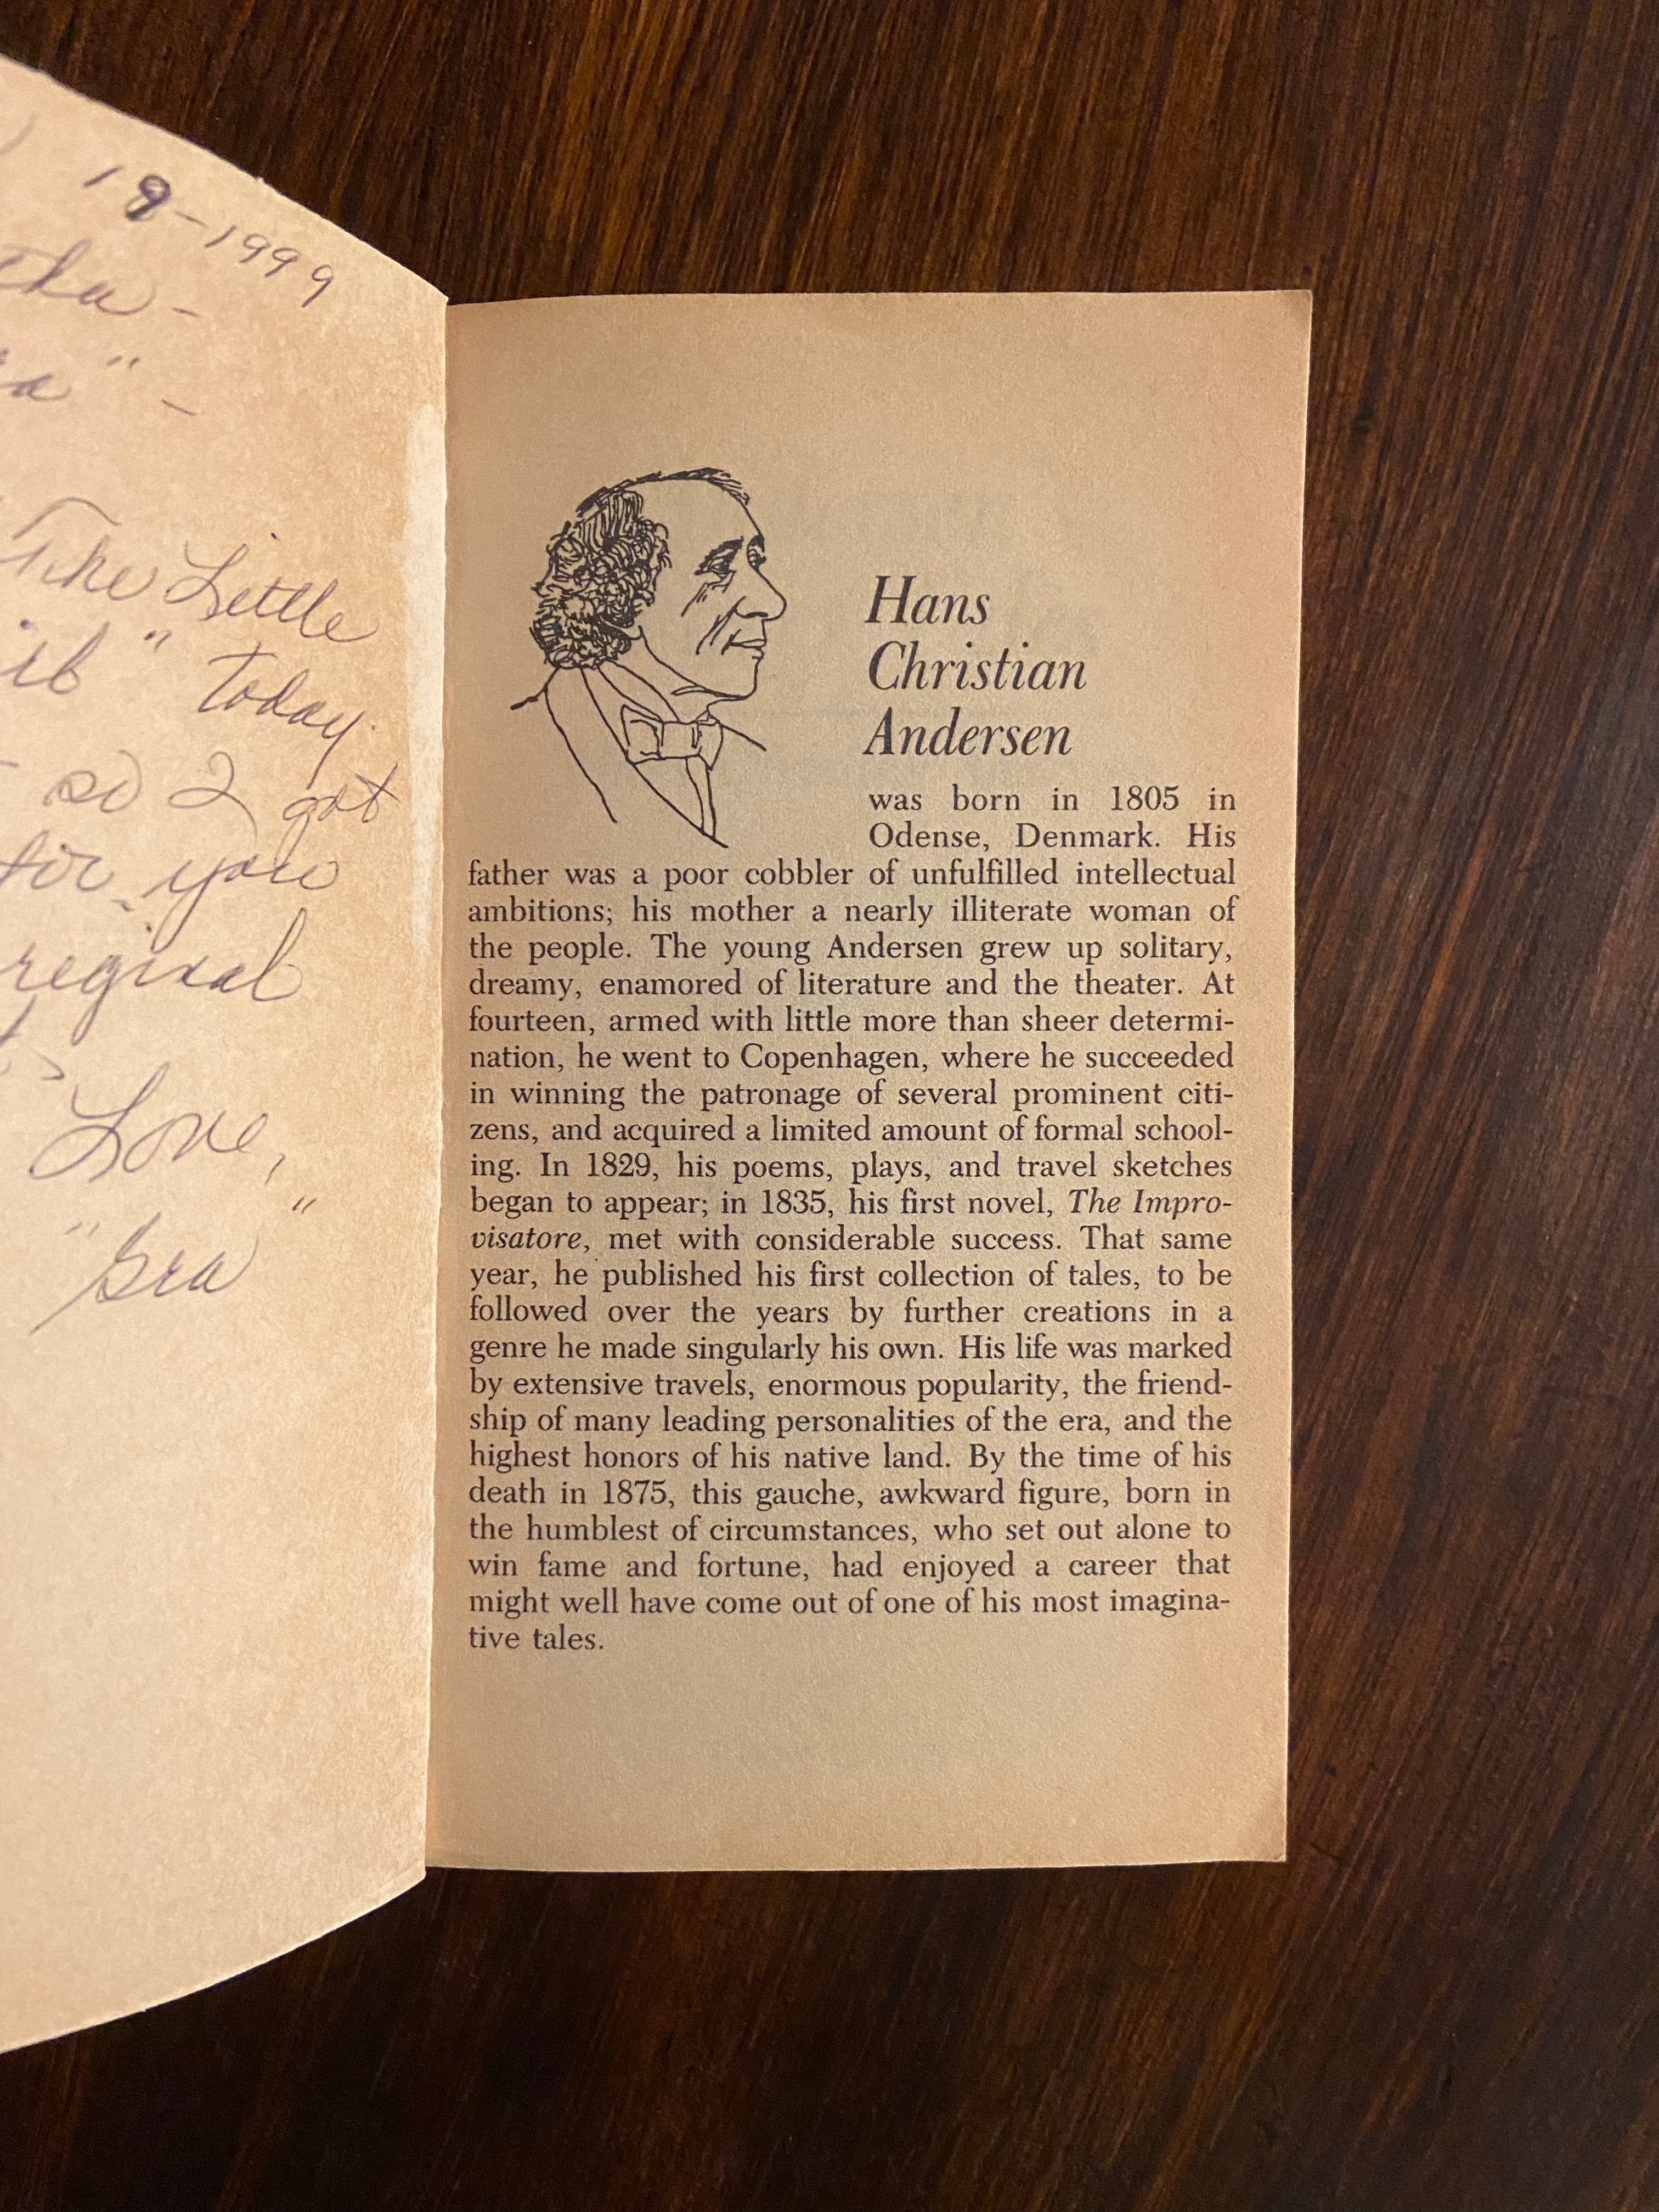 18-1999
"The Little
" today.
so I got
for you
Love,
"Gra"
Hans
Christian
Andersen
was born in 1805 in
Odense, Denmark. His
father was a poor cobbler of unfulfilled intellectual
ambitions; his mother a nearly illiterate woman of
the people. The young Andersen grew up solitary,
dreamy, enamored of literature and the theater. At
fourteen, armed with little more than sheer determi-
nation, he went to Copenhagen, where he succeeded
in winning the patronage of several prominent citi-
zens, and acquired a limited amount of formal school-
ing. In 1829, his poems, plays, and travel sketches
began to appear; in 1835, his first novel, The Impro-
visatore, met with considerable success. That same
year, he published his first collection of tales, to be
followed over the years by further creations in a
genre he made singularly his own. His life was marked
by extensive travels, enormous popularity, the friend-
ship of many leading personalities of the era, and the
highest honors of his native land. By the time of his
death in 1875, this gauche, awkward figure, born in
the humblest of circumstances, who set out alone to
win fame and fortune, had enjoyed a career that
might well have come out of one of his most imagina-
tive tales.